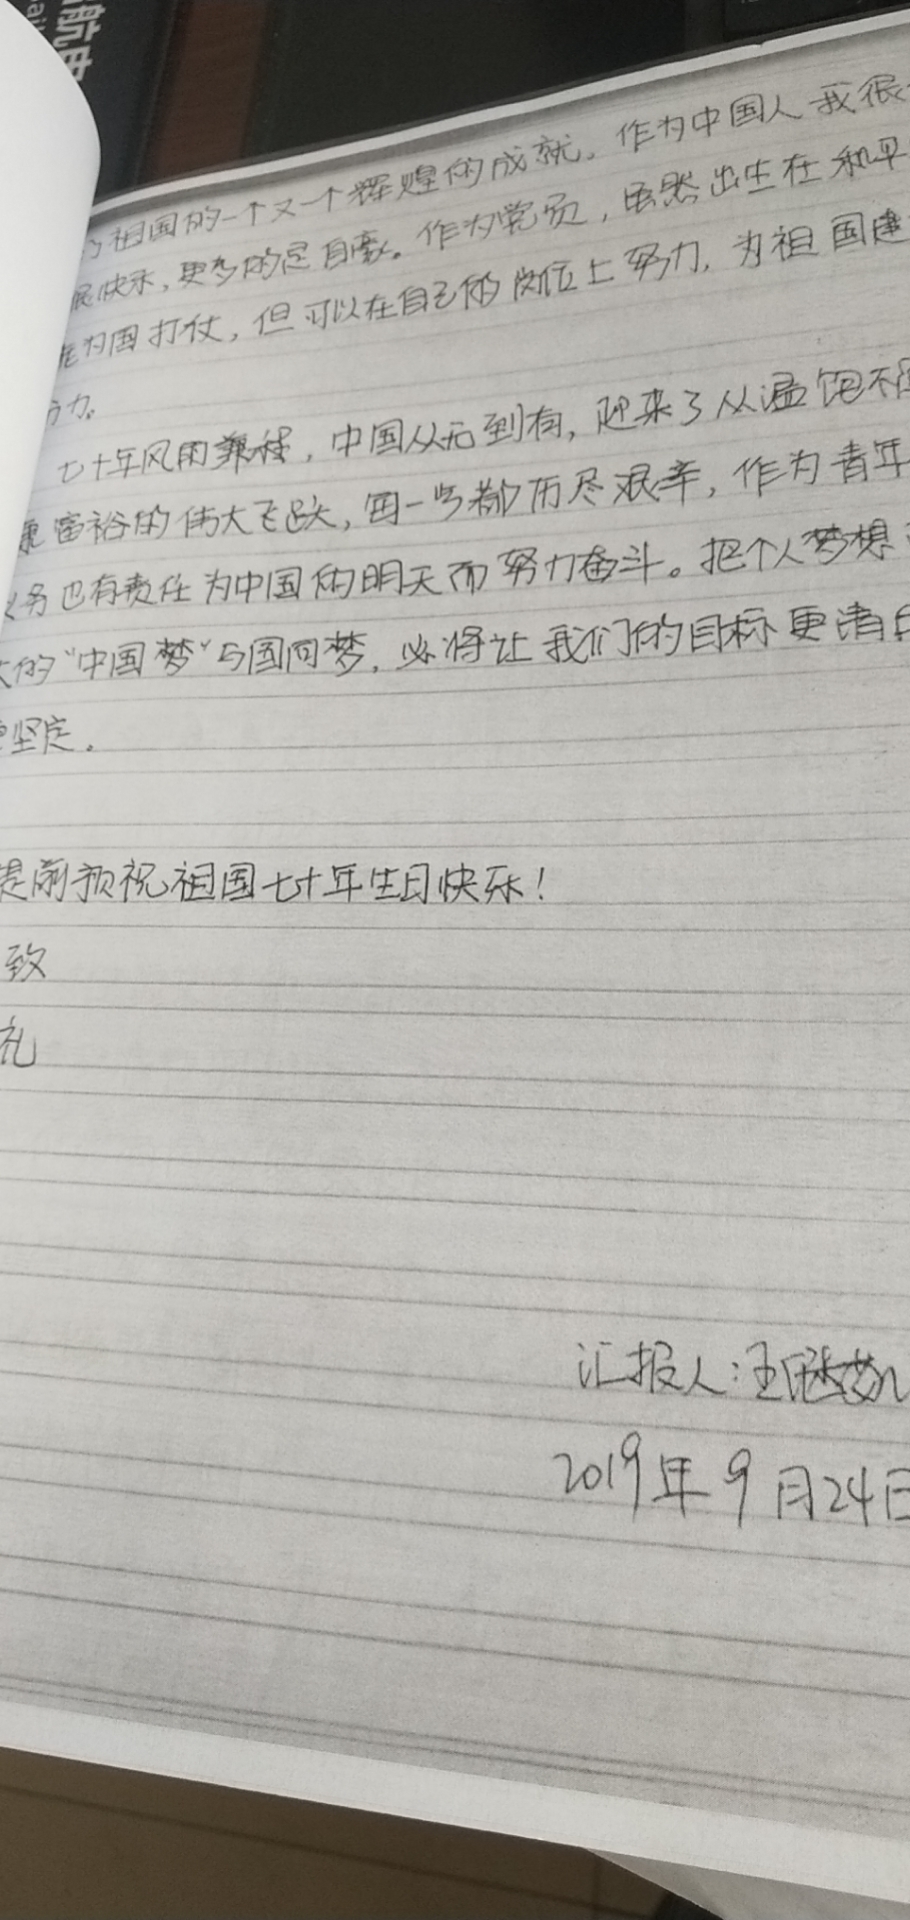 航电
祖国的一个又一个辉煌的成就。作为中国人我很
快乐，更多的是自豪。作为党员，虽然出生在和平
为国打仗，但可以在自己的岗位上努力，为祖国建
力。
七十年风雨兼程，中国从无到有，迎来了从温饱不
康富裕的伟大飞跃，每一步都历尽艰辛，作为青年
义务也有责任为中国的明天而努力奋斗。把个人梦想
的“中国梦”与国同梦，必将让我们的目标更清
坚定。
提前预祝祖国七十年生日快乐！
致
礼
汇报人：王
2019年9月24日